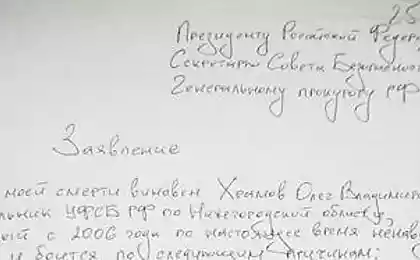 25
Президенту Российской Федера
Секретарю Совета Безопасно
Генеральному прокурору РФ
Заявление
моей смерти виновен Храмов Олег Владимир
льник УФСБ РФ по Нижегородской области,
ый с 2006 года по настоящее время ненав
и боится по следующим причинам: